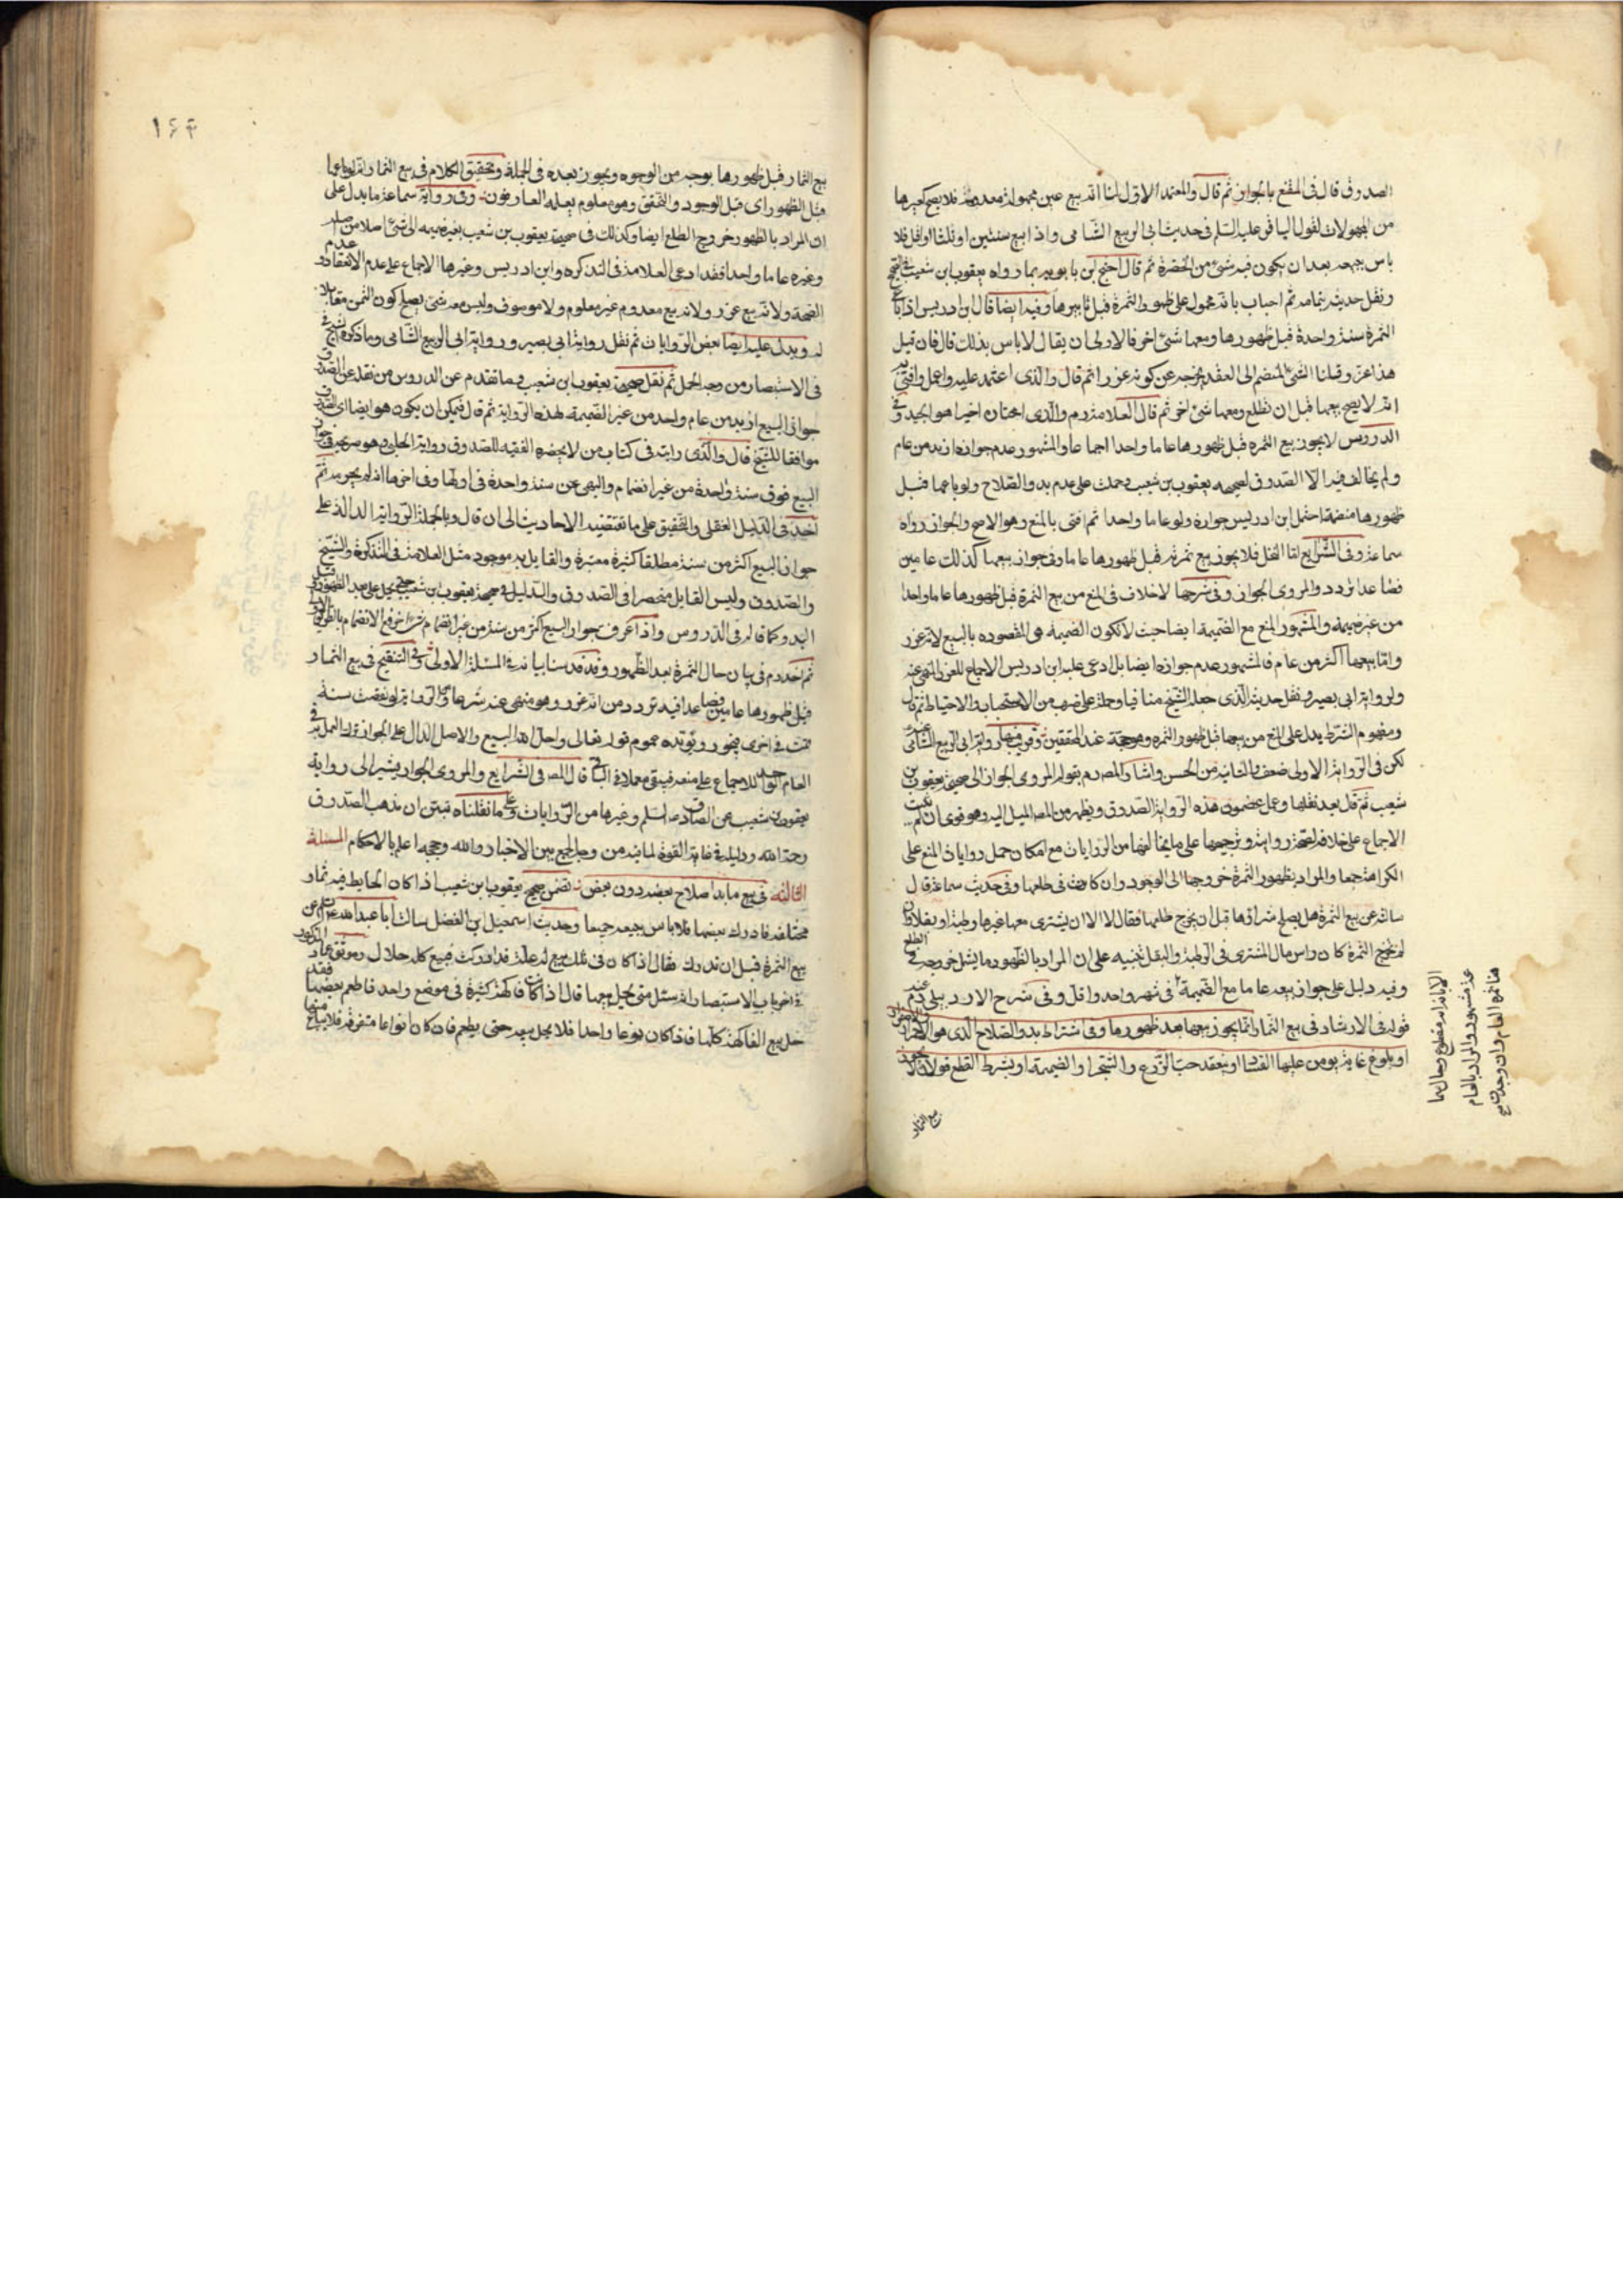 الصدوق قال فى المقنع بالجواز ثم قال والمعتمد الاول لنا انه بيع عين مجهولة معدومة فلا يصح كغيرها
من المجهولات لقول الباقر عليه السلم فى حديث ابى الربيع الشامى واذا بيع سنتين او ثلثا اواقل فلا
باس ببيعه بعد ان يكون فيه شئ من الخضرة ثم قال احتج ابن بابويه بما رواه يعقوب ابن شعيب فى الصحيح
ونقل حديثه بتمامه ثم اجاب بانه محمول على ظهور الثمرة قبل تابيرها وفيه ايضا قال ابن ادريس اذا باع
الثمرة سنة واحدة قبل ظهورها ومعها شئ اخر فالاولى ان يقال لا باس بذلك قال فان قيل
هذا غرر قلنا الشئ المنضم الى العقد يخرجه عن كونه غررا ثم قال والذى اعتمد عليه واعمل وافتى به
انه لا يصح بيعها قبل ان تطلع ومعها شئ اخر ثم قال العلامة ره والذى اختاره اخيرا هو الجيد وفى
الدروس لا يجوز بيع الثمرة قبل ظهورها عاما واحدا اجماعا والمشهور عدم جوازه ازيد من عام
ولم يخالف فيه الا الصدوق لصحيحه يعقوب بن شعيب وحملت على عدم بدو الصلاح ولو باعها قبل
ظهورها منضمة احتمل ابن ادريس جوازه ولو عاما واحدا ثم افتى بالمنع وهو الاصح والجواز رواه
سماعة وفى الشرايع لنا النخل فلا يجوز بيع ثمرته قبل ظهورها عاما وفى جواز بيعها كذلك عامين
فصاعدا تردد والمروى الجواز وفى شرحها لا خلاف فى المنع من بيع الثمرة قبل ظهورها عاما واحدا
من غير ضميمة والمشهور المنع مع الضميمة ايضا حيث لا تكون الضميمة هى المقصوده بالبيع لانه غرر
واما بيعها اكثر من عام فالمشهور عدم جوازه ايضا بل ادعى عليه ابن ادريس الاجماع للغرر المنهى عنه
ولرواية ابى بصير ونقل حديثه الذى جعله الشيخ منافيا وحمله على ضرب من الاستحباب والاحتياط ثم قال
ومفهوم الشرط يدل على المنع من بيعها قبل ظهور الثمرة وهو حجة عند المحققين وقريب منها رواية ابى الربيع الشامى
لكن فى الرواية الاولى ضعف والثانية من الحسن واشار المصره بقوله المروى الجواز الى صحيحة يعقوب بن
شعيب ثم قال بعد نقلها وعمل بمضمون هذه الرواية الصدوق ويظهر من المصر الميل اليه وهو قوى ان لم يثبت
الاجماع على خلافه لصحة روايته وترجيحها على ما يخالفها من الروايات مع امكان حمل روايات المنع على
الكراهة جمعا والمراد بظهور الثمرة خروجها الى الوجود وان كانت فى طلعها وفى حديث سماعة قال
سالته عن بيع الثمرة هل يصلح شراؤها قبل ان يخرج طلعها فقال لا الا ان يشترى معها غيرها رطبة او بقلا فان
لم تخرج الثمرة كان راس مال المشترى فى الرطبة والبقل تنبيه على ان المراد بالظهور ما يشمل خروجه فى الطلع
وفيه دليل على جواز بيعه عاما مع الضميمة فى شهر واحد واقل وفى شرح الارد بيلى ره عند
قوله فى الارشاد فى بيع الثمار انما يجوز بيعها بعد ظهورها وفى اشتراط بدو الصلاح الذى هو الاحمرار والاصفرار
او بلوغ غاية يومن عليها الفساد او ينعقد حب الزرع والشجر او الضميمة او بشرط القطع قولان لا يجوز
بيع الثمار
بيع الثمار قبل ظهورها بوجه من الوجوه ويجوز بعده فى الجملة وتحقيق الكلام فى بيع الثمار انه لو باعها
قبل الظهور اى قبل الوجود والتحقق وهو معلوم يعلمه العارفون وفى رواية سماعة ما يدل على
ان المراد بالظهور خروج الطلع ايضا وكذلك فى صحيحة يعقوب بن شعيب بغير ضميمه الى شئ اصلا من اصله
وغيره عاما واحدا فقد ادعى العلامة فى التذكره وابن ادريس وغيرها الاجماع على عدم الانعقاد وعدم
الصحة ولانه بيع غرر ولانه بيع معدوم غير معلوم ولا موصوف وليس معه شئ يصلح كون الثمن مقابلا
له ويدل عليه ايضا بعض الروايات ثم نقل رواية ابى بصير ورواية ابى الربيع الشامى وما ذكره الشيخ
فى الاستبصار من وجه الحمل ثم نقل صحيحة يعقوب ابن شعيب وما تقدم عن الدروس من نقله عن الصدوق
جواز البيع ازيد من عام واحد من غير الضميمة لهذه الرواية ثم قال فيمكن ان يكون هو ايضا اى الصدوق
موافقا للشيخ قال والذى رايته فى كتاب من لا يحضره الفقيه للصدوق رواية الحلبى وهو صريحه فى جواز
البيع فوق سنة واحدة من غير انضمام والنهى عن سنة واحدة فى اولها وفى اخرها انه لم يحرمه ثم
اخذ فى الدليل العقلى والتحقيق على ما تقتضيه الاحاديث الى ان قال وبالجملة الرواية الدالة على
جواز البيع اكثر من سنة مطلقا كثيرة معتبرة والقايل به موجود مثل العلامة فى التذكرة والشيخ
والصدوق وليس القايل منحصرا فى الصدوق والدليل فى صحيحة يعقوب ابن شعيب حتى يحمل على بعد الظهور قبل
البدو كما قاله فى الدروس واذا عرف جواز البيع اكثر من سنة من غير انضمام شئ اخر فمع الانضمام بالطريق الاولى
ثم اخذ ره فى بيان حال الثمرة بعد الظهور وقد قدمنا بيانه فى المسئلة الاولى وفى التنقيح فى بيع الثمار
قبل ظهورها عامين فصاعدا فيه تردد من انه غرر وهو منهى عنه شرعا والرواية لو نقصت سنة
تمت فى اخرى فيجوز ويؤيده عموم قوله تعالى واحل الله البيع والاصل الدال على الجواز ترك العمل به فى
العام الواحد للاجماع على منعه فيبقى معمولا فى الباقى قال المصر فى الشرايع والمروى الجواز يشير الى رواية
يعقوب بن شعيب عن الصادق ع السلم وغيرها من الروايات وعلى ما نقلناه تبين ان مذهب الصدوق
رحمة الله ودليله فى غاية القوة لما فيه من وجه الجمع بين الاخبار والله وحججه اعلم بالاحكام المسئلة
الثالثة فى بيع ما بدا صلاح بعضه دون بعض تضمن صحيح يعقوب ابن شعيب اذا كان الحايط فيه ثمار
مختلفة فادرك بعضها فلا باس ببيعه جميعا وحديث اسمعيل بن الفضل سالت ابا عبد الله ع عن
بيع الثمرة قبل ان تدرك فقال اذا كان فى تلك بيع له غلة قد ادركت فبيع كله حلال وموثق عمار المذكور
فى اخر باب الاستبصار انه سئل متى يحل بيعها قال اذا كانت فاكهة كثيرة فى موضع واحد فاطعم بعضها فقد
حل بيع الفاكهة كلها فاذا كان نوعا واحدا فلا يحل بيعه حتى يطعم فان كان انواعا متفرقة فلا يباع منها